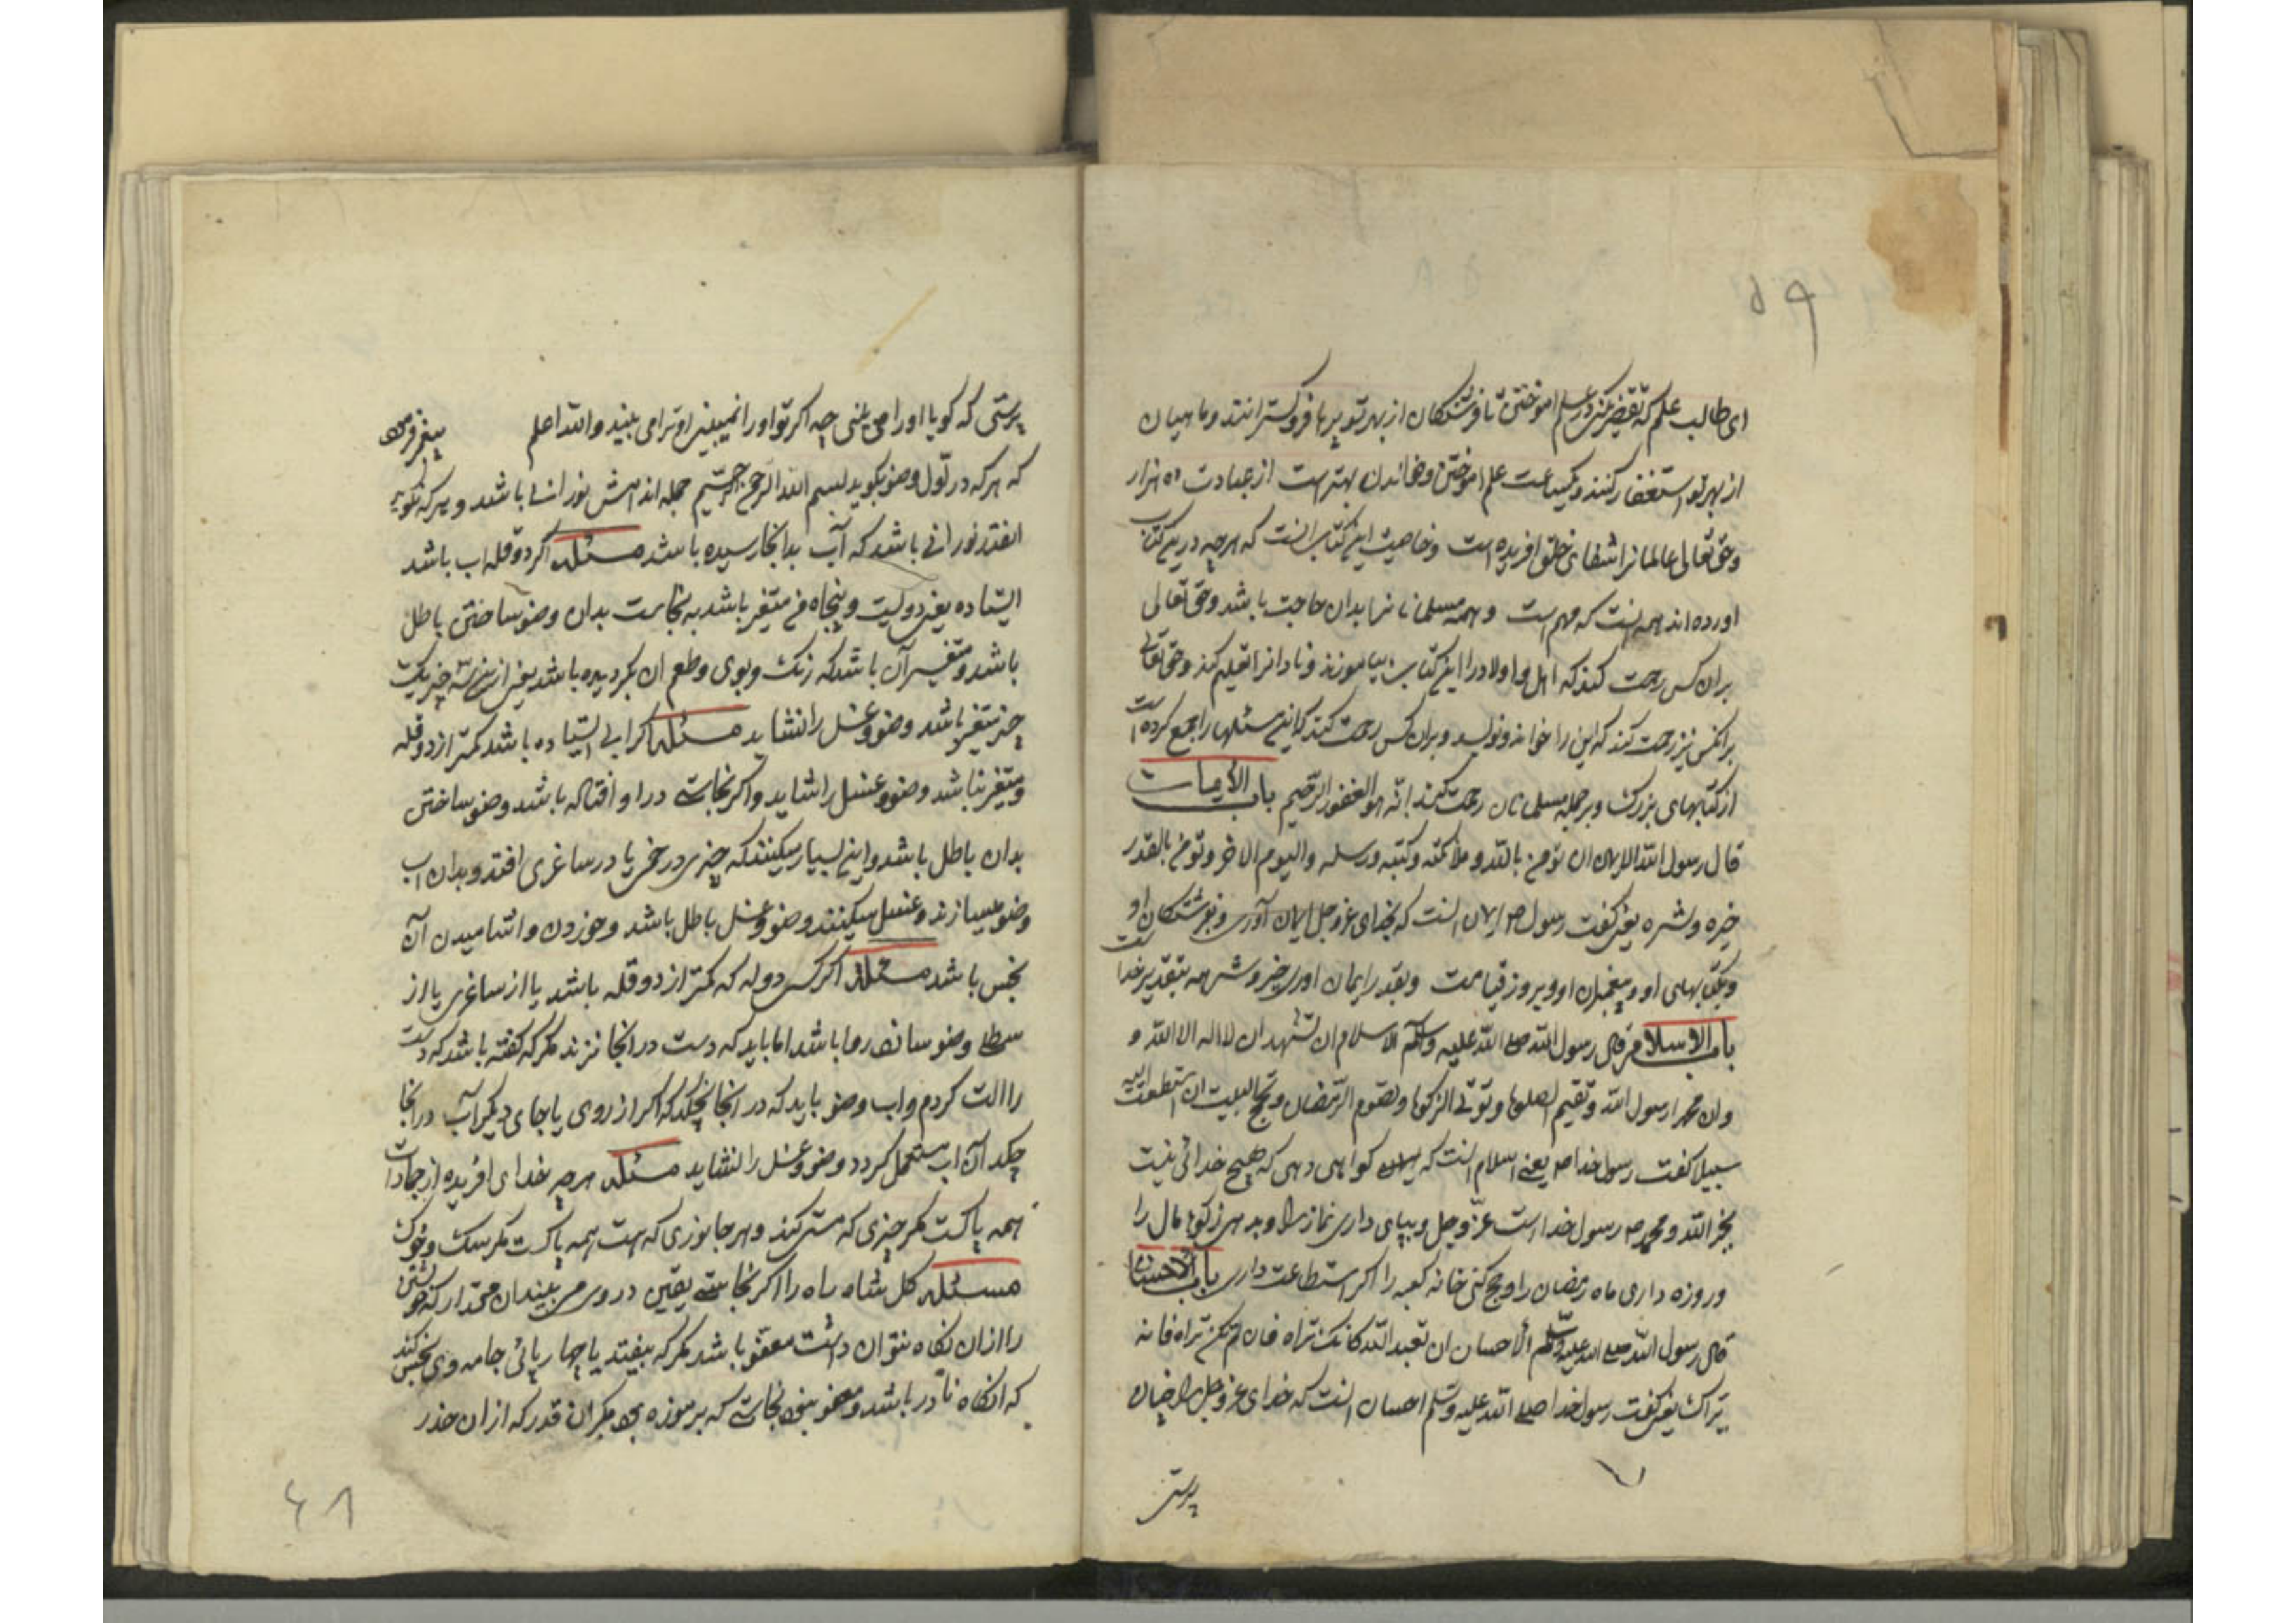 ۵۹
ای طالب علم که تقصیر مکن در علم اموختن تا فرشتکان از بهر تو پرها فروکسترانند و ماهیان
از بهر تو استغفار کنند و یکساعت علم اموختن و خواندن بهتر است از عبادت ده هزار
و حق تعالی عالمانرا شفای خلق افریده است و خاصیت این کتاب انست که هرچه درین کتاب
اورده اند همه انست که مهم است و همه مسلمانانرا بدان حاجت باشد و حق تعالی
بران کس رحمت کند که اهل و اولاد را این کتاب بیاموزند و نادانرا تعلیم کند و حق تعالی
برانکس نیز رحمت کند که این را خواند و نویسد و بران کس رحمت کند که این مسئلها را جمع کرده است
از کتابهای بزرک و بر جمله مسلمانان رحمت کند انّه هو الغفور الرّحیم باب الایمان
قال رسول الله الایمان ان تؤمن بالله و ملائکته و کتبه و رسله و الیوم الاخر و تؤمن بالقدر
خیره و شره یعنی کفت رسول ص ایمان انست که بخدای عزوجل ایمان آوری و بفرشتکان او
و بکتابهای او و پیغمبران او و بروز قیامت و بقدر ایمان اوری خیر و شر همه بتقدیر خداست
باب الاسلام قال رسول الله صلی الله علیه وسلم الاسلام ان تشهد ان لا اله الا الله و
وان محمدا رسول الله و تقیم الصلوة و توتی الزکوة و تصوم الرمضان و تحج البیت ان استطعت الیه
سبیلا کفت رسول خدا ص یعنی اسلام انست که کواهی دهی که هیچ خدائی نیست
بجز الله و محمد ص رسول خداست عزّ وجل و بپای داری نماز را و بدهی زکوة مال را
و روزه داری ماه رمضان را و حج کنی خانه کعبه را اکر استطاعت داری باب الاحسان
قال رسول الله صلی الله علیه وسلم الاحسان ان تعبد الله کانک تراه فان لم تکن تراه فانه
یراک یعنی کفت رسول خدا صلی الله علیه وسلم احسان انست که خدای عزوجل را چنان
پرستی
پرستی که کویا او را می بینی چه اکر تو او را نمیبینی او ترا می بیند والله اعلم پیغمبر فرموده
که هرکه در اول وضو بکوید بسم الله الرحمن الرحیم جمله اندامش نورانی باشد و هرکه نکوید
انقدر نورانی باشد که آب بدانجا رسیده باشد مسئله اکر دو قله اب باشد
ایستاده یعنی دویست و پنجاه من متغیر باشد به نجاست بدان وضو ساختن باطل
باشد و متغیر آن باشد که رنک و بوی و طعم ان بکردیده باشد یعنی ازین سه چیز یک
چیز متغیر باشد وضو و غسل را نشاید مسئله اکر ابی ایستاده باشد کمتر از دو قله
و متغیر نباشد وضو و غسل را شاید و اکر نجاستی در او افتاده باشد وضو ساختن
بدان باطل باشد و این بسیار میکنند که چیزی در خمی یا در ساغری افتد و بدان اب
وضو میسازند و غسل میکنند وضو و غسل باطل باشد و خوردن و اشامیدن آن
نجس باشد مسئله اکر کس دوله که کمتر از دو قله باشد یا از ساغری یا از
سطلی وضو سازد روا باشد اما باید که دست در انجا نزند مکر که کفته باشد که دست
را الت کردم و اب وضو باید که در انجا نچکد که اکر از روی یا جای دیکر آب در انجا
چکد آن اب مستعمل کردد وضو و غسل را نشاید مسئله هرچه خدای افریده از جمادات
همه پاکست مکر چیزی که مست کند و هر جانوری که هست همه پاکست مکر سک و خوک
مسئله کل شاه راه را اکر نجاستی یقین در وی می بیند ان مقدار که خویشتن
را ازان نکاه نتوان داشت معفو باشد مکر که بیفتد یا چهارپائی جامه وی نجس کند
که انکاه نادر باشد و معفو نبود نجاستی که بر موزه بود مکر ان قدر که از ان حذر